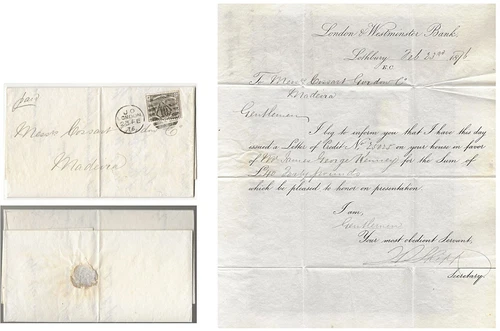 paid
Messrs Cossart Gordon & Co
Madeira
London & Westminster Bank,
Lothbury, Feb 23rd 1876
E.C.
To Messrs Cossart Gordon & Co
Madeira
Gentlemen
I beg to inform you that I have this day
issued a Letter of Credit No on your house in favor
of James George Kenney for the Sum
of Forty pounds
which be pleased to honor on presentation.
I am,
Gentlemen
Your most obedient Servant,
Secretary.